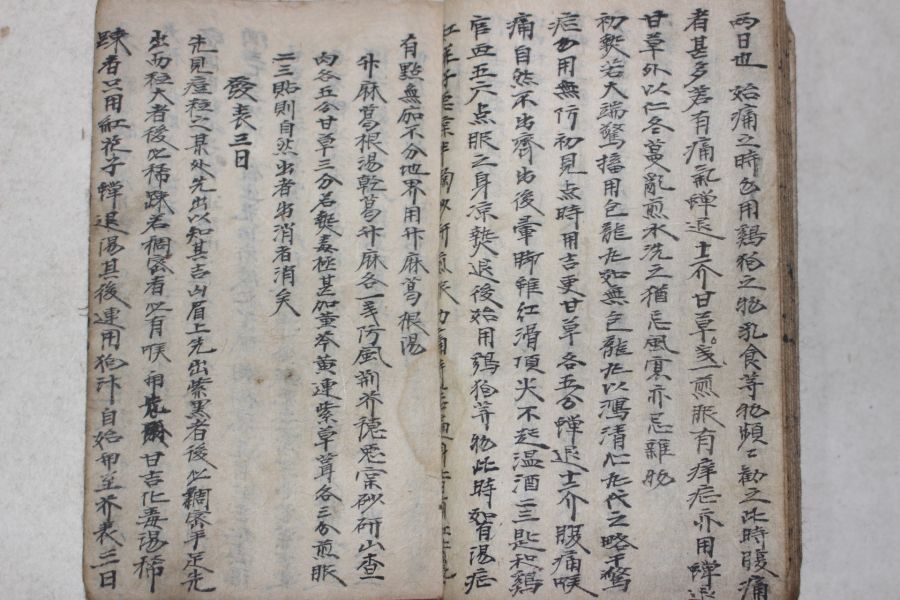 兩日也 始痛之時勿用鷄狗之物乳食等物頻頻勸之此時腹痛
者甚多若有痛氣蟬退士介甘草戔一煎服有痒疮亦用蟬退
甘草外以仁冬蔓亂煎水洗之猶忌風寒亦忌雜物
初熱若大端驚搐用包龍丸如無包龍丸以瀉淸心丸代之略干驚
疮勿用無妨初見点時用吉更甘草各五分蟬退士介腹痛喉
痛自然不出齊出後暈脚雖紅滑頂尖不起温酒二三匙和鷄
官血五六点服之身凉熱退後始用鷄狗等物此時如有湯疮
有點無加不分地界用升麻葛根湯
升麻葛根湯乾葛升麻各一戔防風荊芥穗悪宲砂研山査
肉各五分甘草三分若熱毒極甚加黃芩黃連紫草茸各三分煎服
二三貼則自然出者出消者消矣
發表三日
先見痘粒之某外先出以知其吉凶眉上先出紫黑者後必稠密手足先
出而粒大者後必稀疎若稠密者必有喉 甘吉化毒湯稀
踈者只用紅花子蟬退湯其後連用狗汁自始 至 表三日